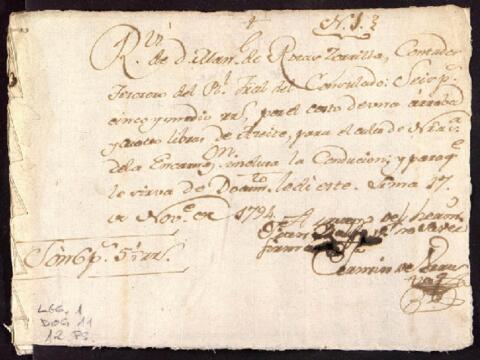 N. 1. 3
R.vi de d. Man.l de Rozas Zorrilla, Contador
Tesorero del R.l Tral del Consulado: Seis p.s
cinco y medio rr.s, por el costo de una arroba
y quatro libras de Aceite, para el culto de N. Sra
de la Encarn.on inclusa la Conducion; y para q.e
le sirva de Docum.to le di este. Lima 17
de Nov.e de 1794.
A ruego del herm.o
Juan no saver
firmar
Fermin de
Son 6 p.s 5½ rr.s
LEG. 1
DOC 11
12 PS